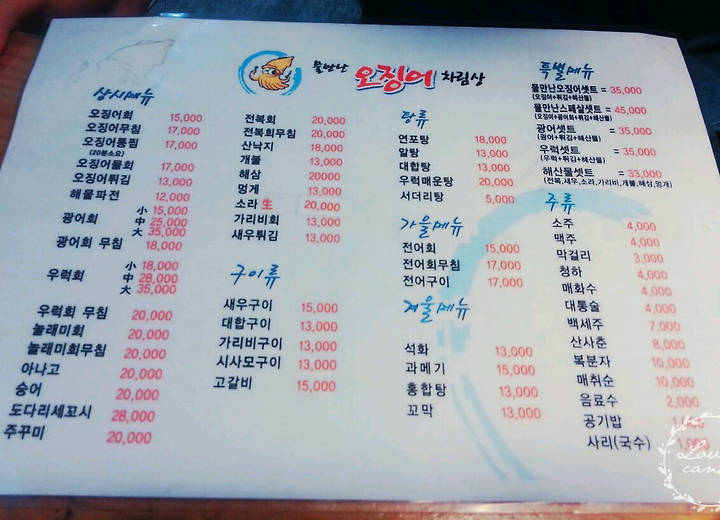 물만난 오징어 차림상
상시메뉴
오징어회 15,000
오징어무침 17,000
오징어통찜 17,000
(20분소요)
오징어물회 17,000
오징어튀김 13,000
해물파전 12,000
광어회 小 15,000
中 25,000
大 35,000
광어회 무침 18,000
우럭회 小 18,000
中 28,000
大 35,000
우럭회 무침 20,000
놀래미회 20,000
놀래미회무침 20,000
아나고 20,000
숭어 20,000
도다리세꼬시 28,000
주꾸미 20,000
전복회 20,000
전복회무침 20,000
산낙지 18,000
개불 13,000
해삼 20000
멍게 13,000
소라 生 20,000
가리비회 13,000
새우튀김 13,000
구이류
새우구이 15,000
대합구이 13,000
가리비구이 13,000
시사모구이 13,000
고갈비 15,000
탕류
연포탕 18,000
알탕 13,000
대합탕 13,000
우럭매운탕 20,000
서더리탕 5,000
가을메뉴
전어회 15,000
전어회무침 17,000
전어구이 17,000
겨울메뉴
석화 13,000
과메기 15,000
홍합탕 13,000
꼬막 13,000
특별메뉴
물만난오징어셋트 = 35,000
(오징어+튀김+해산물)
물만난스페샬셋트 = 45,000
(오징어+광어회+튀김+해산물)
광어셋트 = 35,000
(광어+튀김+해산물)
우럭셋트 = 35,000
(우럭+튀김+해산물)
해산물셋트 = 33,000
(전복,새우,소라,가리비,개불,해삼,멍게)
주류
소주 4,000
맥주 4,000
막걸리 3,000
청하 4,000
매화수 4,000
대통술 4,000
백세주 7,000
산사춘 8,000
복분자 10,000
매취순 10,000
음료수 2,000
공기밥
사리(국수)